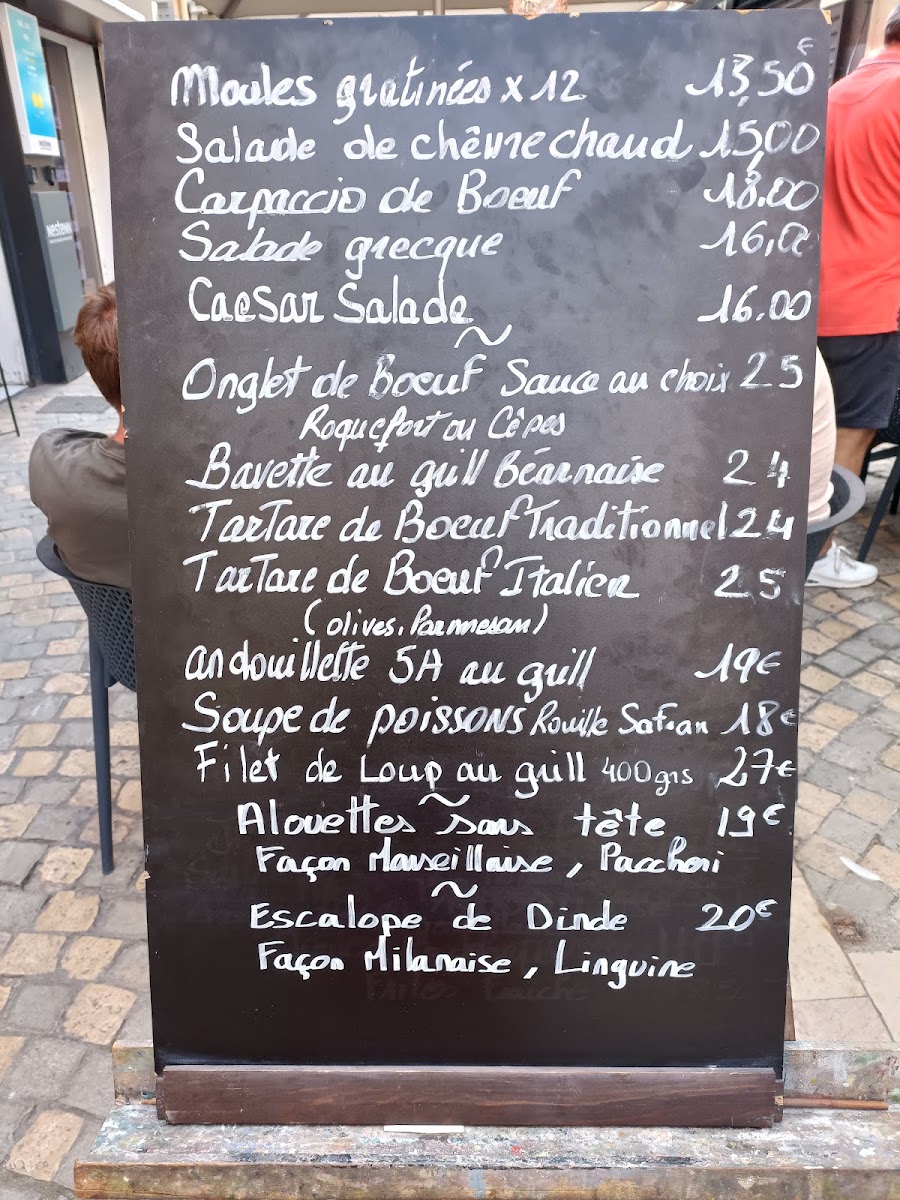 Moules gratinées x 12 13,50€
Salade de chèvre chaud 15,00
Carpaccio de Boeuf 18.00
Salade grecque 16,0
Caesar Salade 16.00
~
Onglet de Boeuf Sauce au choix 25
Roquefort ou Cêpes
Bavette au grill Béarnaise 24
Tartare de Boeuf Traditionnel 24
Tartare de Boeuf Italien 25
(olives, Parmesan)
andouillette 5A au grill 19€
Soupe de poissons Rouille Safran 18€
Filet de Loup au grill 400grs 27€
~
Alouettes sans tête 19€
Façon Marseillaise, Paccheri
~
Escalope de Dinde 20€
Façon Milanaise, Linguine